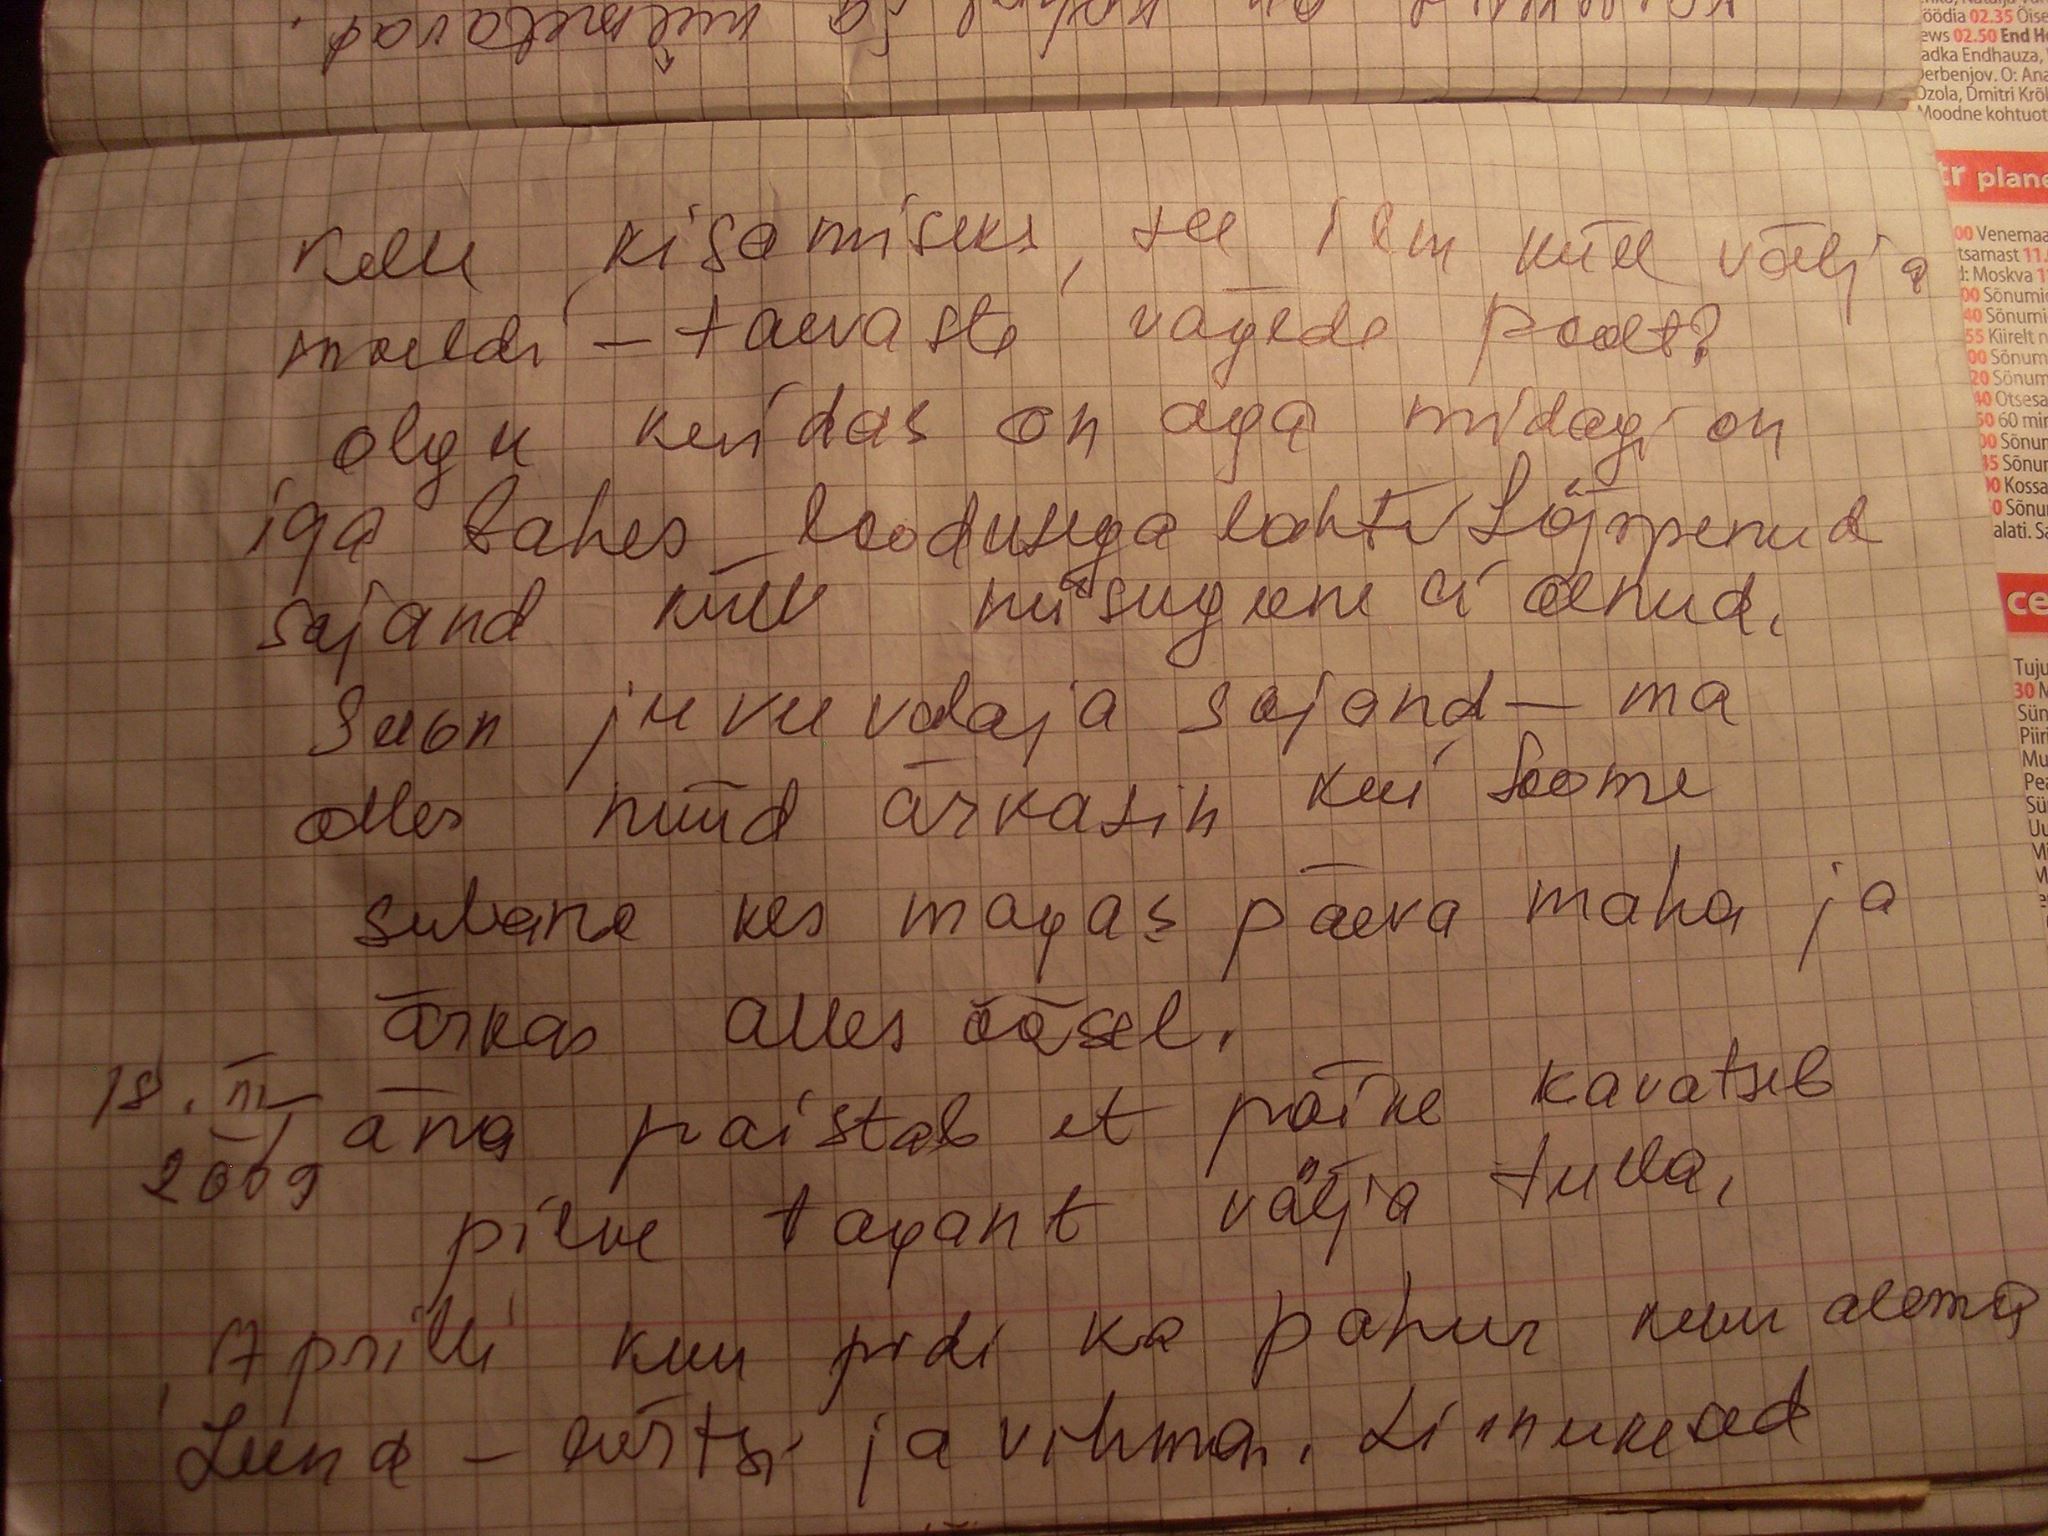 külmetavad.
Kelle kisamiseks, see ilm küll välja
moeldi – taevaste vägede poolt?
olgu kuidas on aga midagi on
iga tahes loodusega lahti Lõppenud
sajand küll niisugune ei olnud.
See on ju veevalaja sajand – ma
alles nüüd ärkasin kui Soome
sulane kes magas päeva maha ja
ärkas alles öösel.
18. III 2009 äna paistab et päike kavatseb
pilve tagant välja tulla,
Aprilli kuu pidi ka pahur kuu olema
Lund – lörtsi ja vihma. Linnukesed
öödia 02.35 Õise
ews 02.50 End H
adka Endhauza,
erbenjov. O: Ana
Ozola, Dmitri Krõl
Moodne kohtuot
tr plane
00 Venemaa
tsamast 11.
d: Moskva 1
00 Sõnumi
40 Sõnumi
55 Kiirelt n
00 Sõnum
20 Sõnum
40 Otsesa
50 60 min
00 Sõnum
45 Sõnur
00 Kossa
0 Sõnur
alati. Sa
ce
Tuju
30 M
Sün
Piiri
Mu
Pea
Sü
Uu
Mi
M